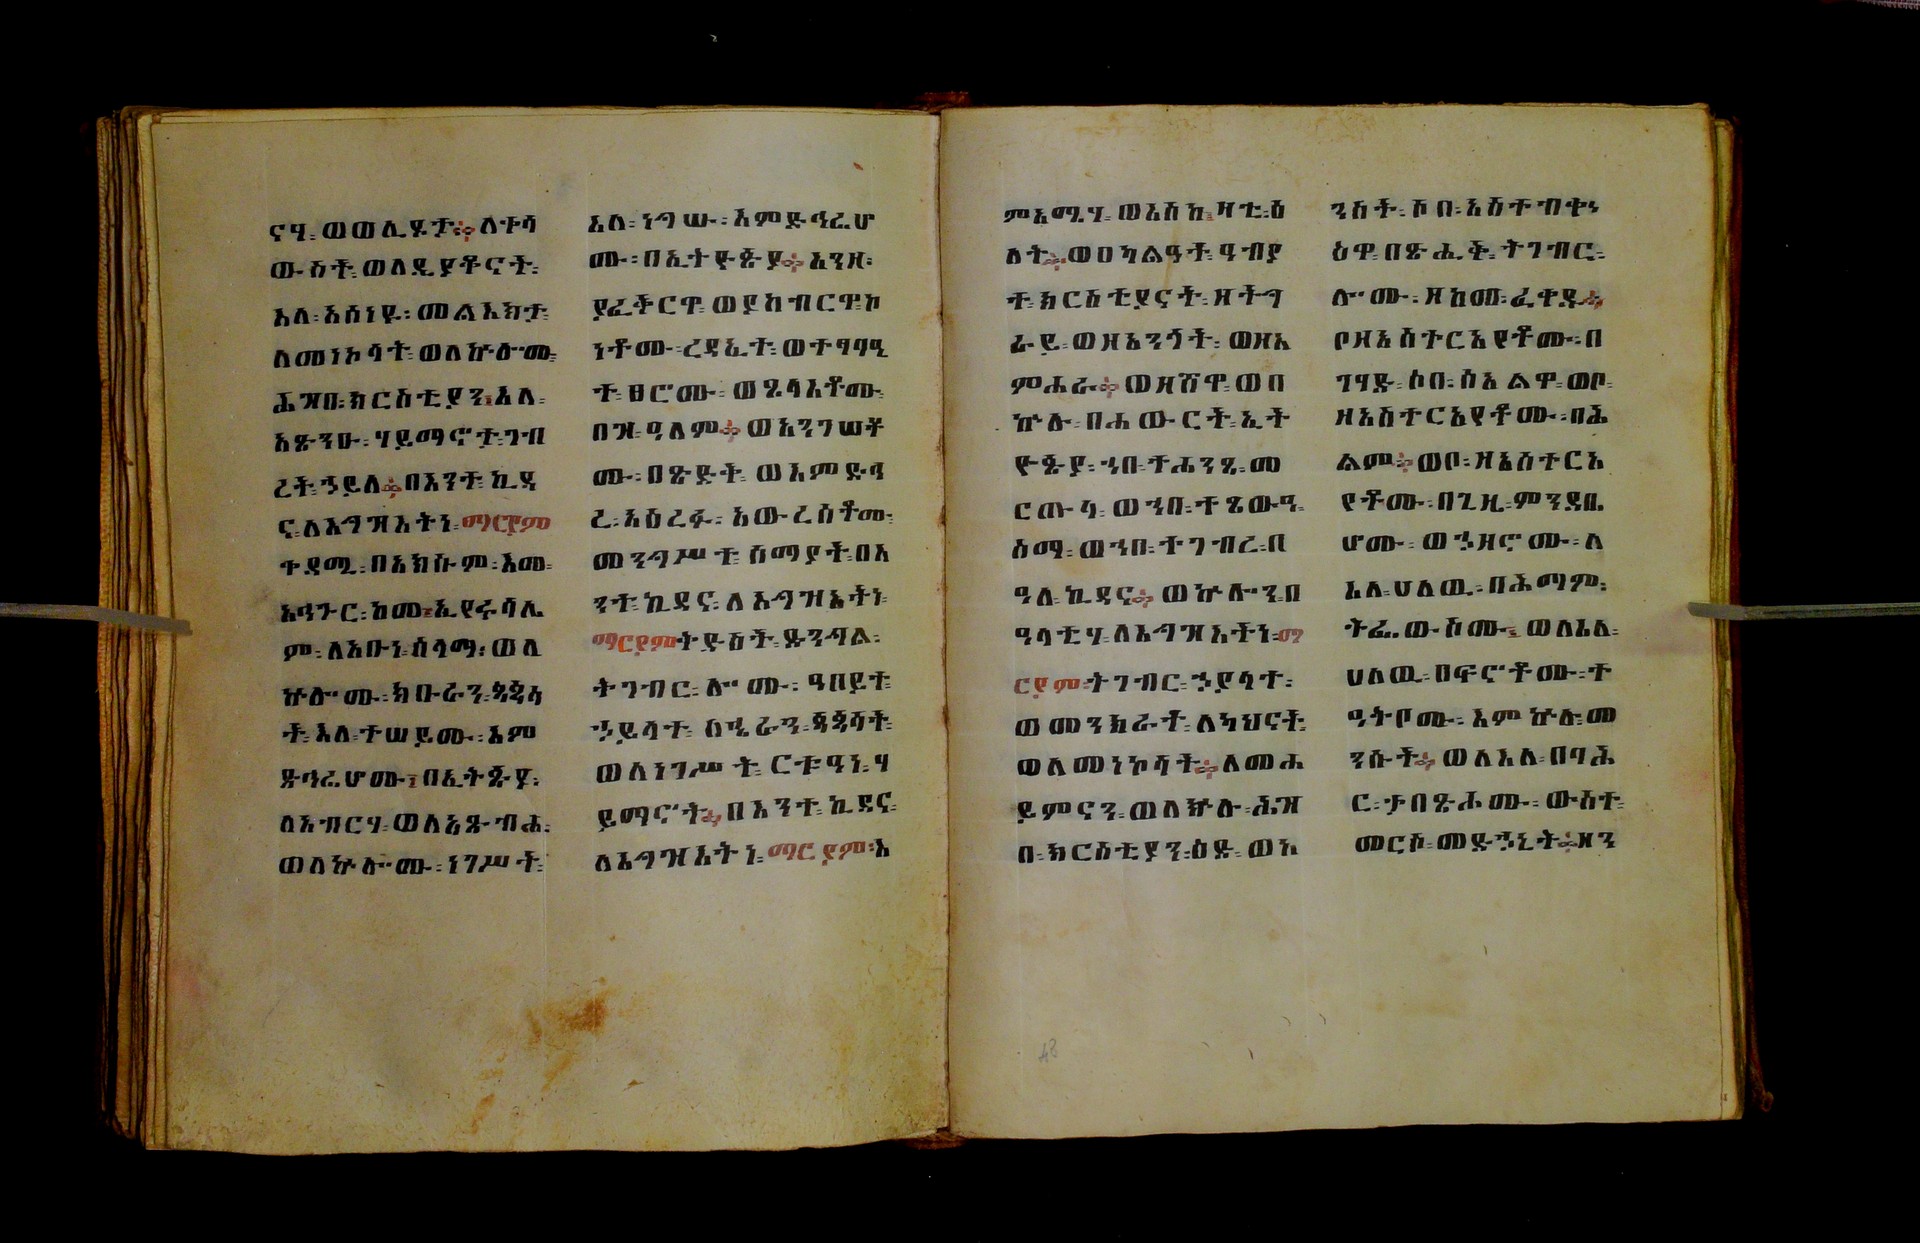 ናሃ፡ ወወሊዶታ። ለተሳ
ውስት፡ ወለዲያቆናት፡
እለ፡ አስነዩ፡ መልእክታ፡
ለመነኮሳት፡ ወለኵሎሙ፡
ሕዝበ፡ ክርስቲያን፡ እለ፡
አጽንዑ፡ ሃይማኖታ፡ ገብ
ረት፡ ኃይለ። በእንተ፡ ኪዳ
ና፡ ለእግዝእትነ፡ ማርያም
ቀዳሚ፡ በአክሱም፡ እመ፡
አህጉር፡ ከመ፡ ኢየሩሳሌ
ም፡ ለአቡነ፡ ሰላማ፡ ወለ
ኵሎሙ፡ ክቡራን፡ ጳጳሳ
ት፡ እለ፡ ተሠይሙ፡ እም
ድኅሬሆሙ፡ በኢትዮጵያ፡
ለአብርሃ፡ ወለአጽብሐ፡
ወለኵሎሙ፡ ነገሥት፡
እለ፡ ነግሡ፡ እምድኅሬሆ
ሙ፡ በኢትዮጵያ። እንዘ፡
ያፈቅርዋ፡ ወያከብርዋ፡ ኮ
ነቶሙ፡ ረዳኢተ፡ ወተፃባዒ
ተ፡ ፀሮሙ፡ ወጼሳእቶሙ፡
በዝ፡ ዓለም። ወአንገሠቶ
ሙ፡ በጽድት፡ ወእምድኅ
ረ፡ አዕረፉ፡ አውረሰቶሙ፡
መንግሥተ፡ ሰማያት፡ በእ
ንተ፡ ኪዳና፡ ለእግዝእትነ፡
ማርያም ትድስት፡ ድንግል፡
ትገብር፡ ሎሙ፡ ዓበይተ፡
ኃይላተ፡ ለኄራን፡ ጳጳሳት፡
ወለነገሥት፡ ርቱዓነ፡ ሃ
ይማኖት። በእንተ፡ ኪዳና፡
ለእግዝእትነ፡ ማርያም፡ እ
ምእሜሃ፡ ወእስከ፡ ዛቲ፡ ዕ
ለት። ወበካልዓት፡ ዓብያ
ተ፡ ክርስቲያናት፡ ዘትግ
ራይ፡ ወዘአንጎት፡ ወዘአ
ምሐራ። ወዘሸዋ፡ ወበ
ኵሉ፡ በሐውርት፡ ኢት
ዮጵያ፡ ኀበ፡ ተሐንጸ፡ መ
ርጡላ፡ ወኀበ፡ ተጼውዓ፡
ስማ፡ ወኀበ፡ ተገብረ፡ በ
ዓለ፡ ኪዳና። ወኵሎን፡ በ
ዓላቲሃ፡ ለእግዝእትነ፡ ማ
ርያም፡ ትገብር፡ ኃያላተ፡
ወመንክራተ፡ ለካህናት፡
ወለመነኮሳት። ለመሐ
ይምናን፡ ወለኵሉ፡ ሕዝ
በ፡ ክርስቲያን፡ ዕድ፡ ወአ
ንስት፡ ሶበ፡ አስተብቍ
ዕዋ፡ በጽሒቅ፡ ትገብር፡
ሎሙ፡ ዘከመ፡ ፈቀዱ።
ቦዘአስተርአየቶሙ፡ በ
ገሃድ፡ ሶበ፡ ሰአልዋ፡ ወቦ፡
ዘአስተርአየቶሙ፡ በሕ
ልም። ወቦ፡ ዘአስተርአ
የቶሙ፡ በጊዜ፡ ምንዳቤ
ሆሙ፡ ወኃዘኖሙ፡ ለ
እለ፡ ሀለዉ፡ በሕማም፡
ትፌውሶሙ፡ ወለእለ፡
ሀለዉ፡ በፍኖቶሙ፡ ተ
ዓትቦሙ፡ እምኵሉ፡ መ
ንሱት። ወለእለ፡ በባሕ
ር፡ ታበጽሖሙ፡ ውስተ፡
መርሶ፡ መድኃኒት። ዘን
48